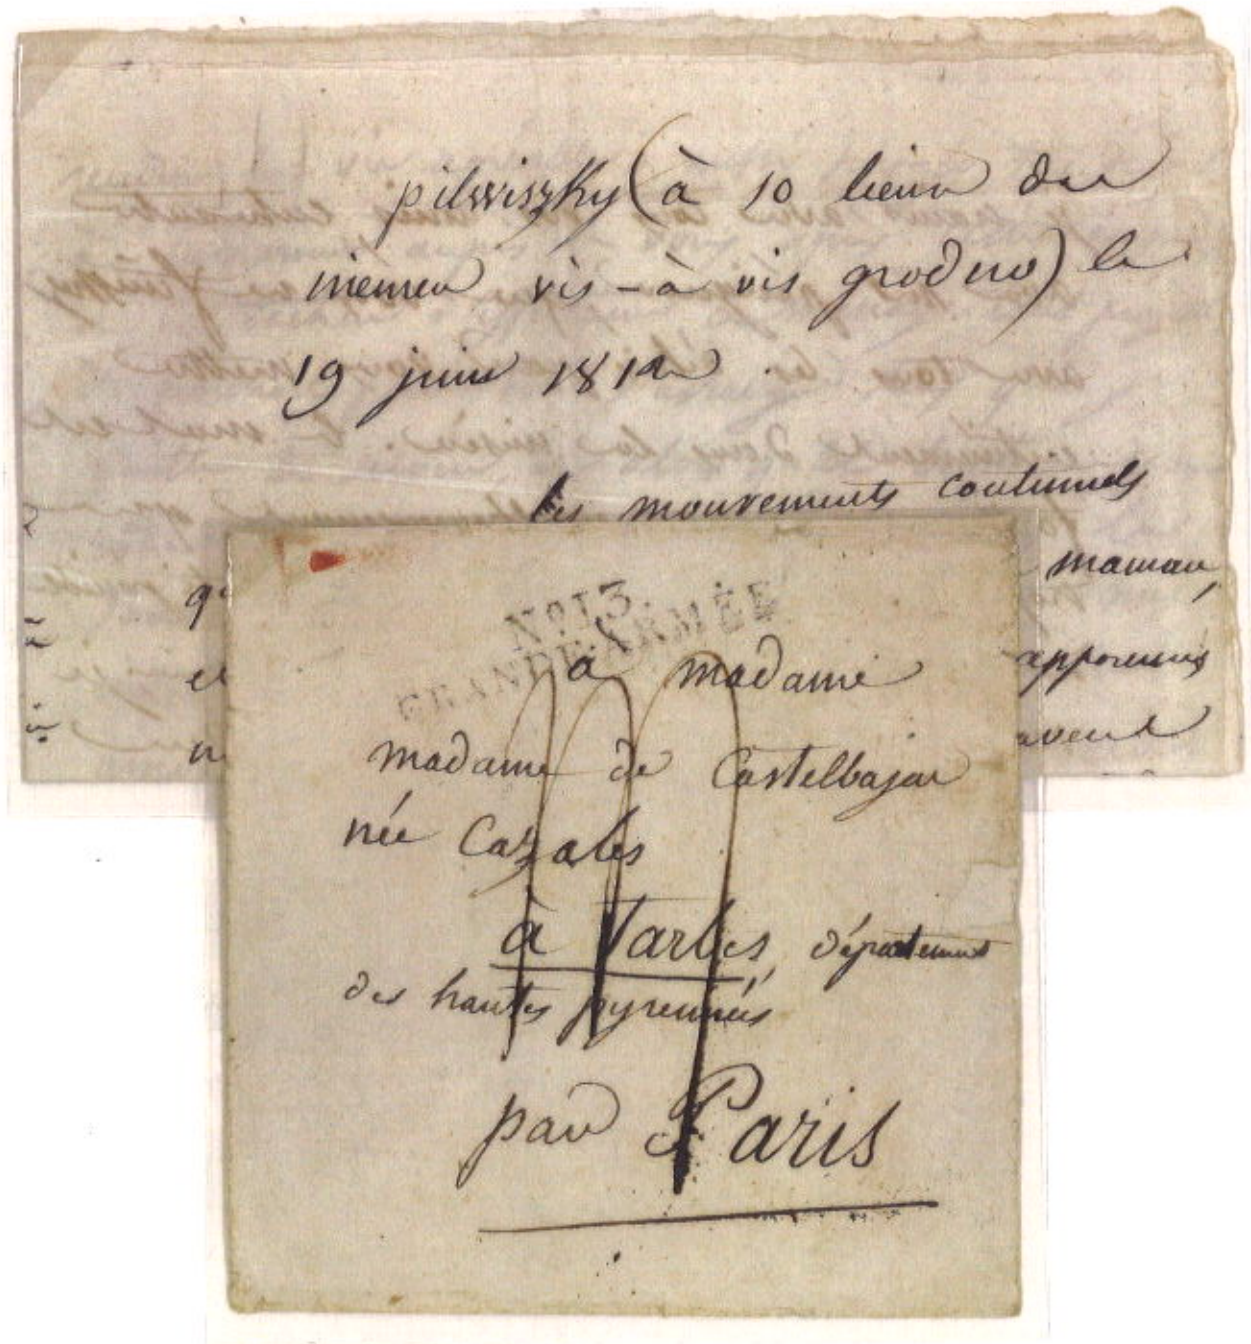 pilwiszky (à 10 lieux du
niemen vis-à vis grodno) le
19 juin 1812
les mouvements continuels
maman,
et
apprenns
avent
N° 13
GRANDE ARMÉE
a madame
madame de Castelbajac
née Cazalès
à Tarbes, département
des hautes pyrennées
par Paris